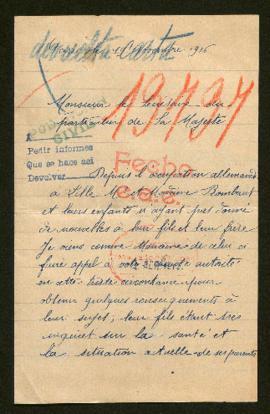 devuelta carta
Novembre 1916
Monsieur le Secrétaire du
particulier de Sa Majesté
19.797
POBLACIÓN
CIVIL
Pedir informes
Que se hace así
Devolver
Fecho
Depuis l'occupation allemande
à Lille Mr et Madame Rombaut
et leurs enfants n'ayant pas donné
de nouvelles à leur fils et leur frère
Je viens comme Marraine de celui ci
faire appel à votre grande autorité
en cette triste circonstance pour
obtenir quelques renseignements à
leur sujet; leur fils étant très
inquiet sur la santé et
la situation actuelle de ses parents